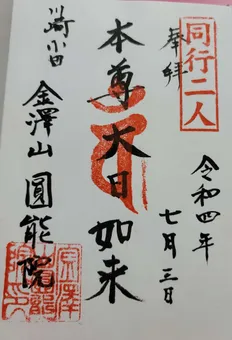 同行二人
奉拝
令和四年
七月三日
本尊大日如来
金澤山圓能院